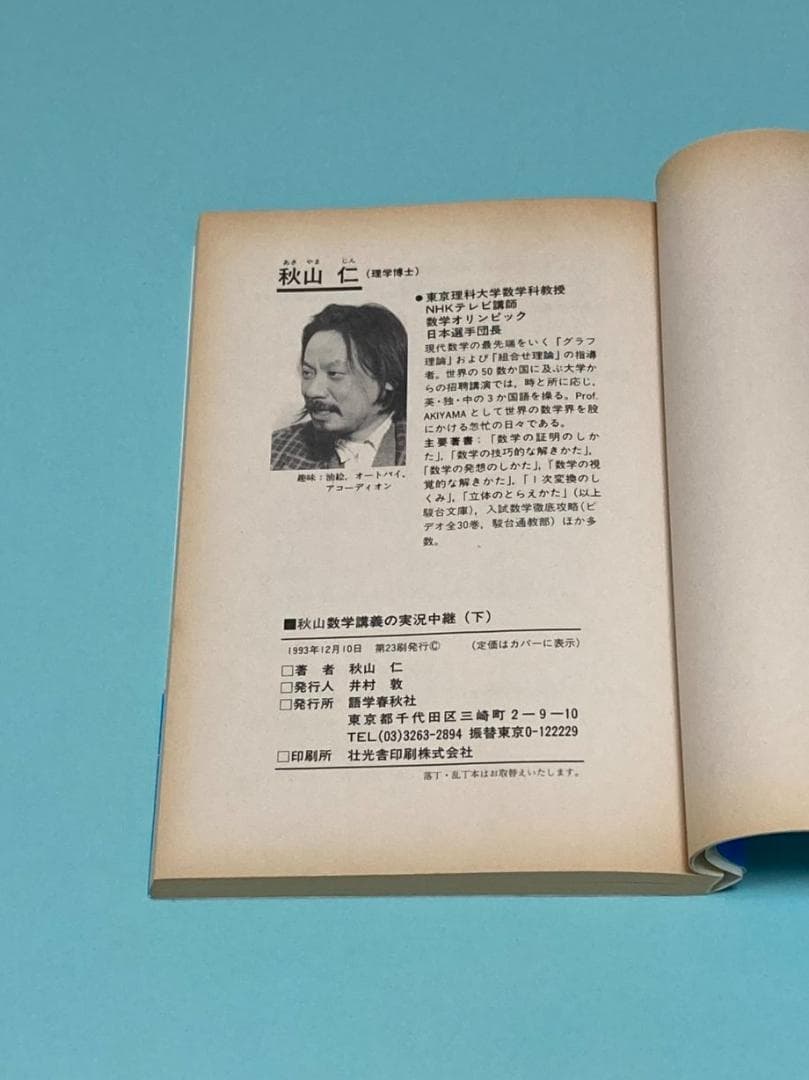 あき やま じん
秋山 仁 (理学博士)
●東京理科大学数学科教授
NHKテレビ講師
数学オリンピック
日本選手団長
現代数学の最先端をいく「グラフ
理論」および「組合せ理論」の指導
者。世界の50数か国に及ぶ大学か
らの招聘講演では，時と所に応じ，
英・独・中の3か国語を操る。Prof.
AKIYAMAとして世界の数学界を股
にかける怱忙の日々である。
主要著書：「数学の証明のしか
た」，「数学の技巧的な解きかた」，
「数学の発想のしかた」，「数学の視
覚的な解きかた」，「1次変換のし
くみ」，「立体のとらえかた」(以上
駿台文庫)，入試数学徹底攻略(ビ
デオ全30巻，駿台通教部) ほか多
数。
趣味：油絵，オートバイ，
アコーディオン
■秋山数学講義の実況中継(下)
1993年12月10日 第23刷発行© (定価はカバーに表示)
□著 者 秋山 仁
□発行人 井村 敦
□発行所 語学春秋社
東京都千代田区三崎町2－9－10
TEL(03)3263-2894 振替東京0-122229
□印刷所 壮光舎印刷株式会社
落丁・乱丁本はお取替えいたします。